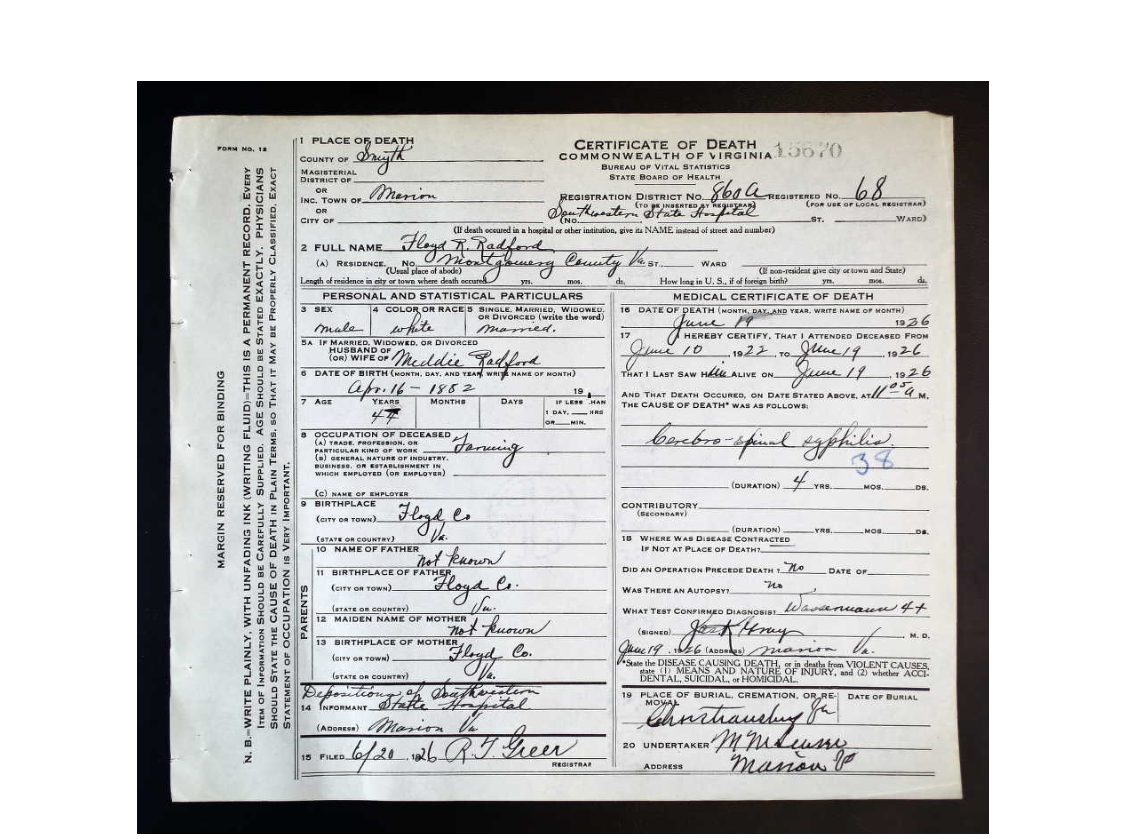 FORM NO. 12
MARGIN RESERVED FOR BINDING
N. B.—WRITE PLAINLY, WITH UNFADING INK (WRITING FLUID)—THIS IS A PERMANENT RECORD. EVERY
ITEM OF INFORMATION SHOULD BE CAREFULLY SUPPLIED. AGE SHOULD BE STATED EXACTLY. PHYSICIANS
SHOULD STATE THE CAUSE OF DEATH IN PLAIN TERMS, SO THAT IT MAY BE PROPERLY CLASSIFIED. EXACT
STATEMENT OF OCCUPATION IS VERY IMPORTANT.
1 PLACE OF DEATH
COUNTY OF Smyth
MAGISTERIAL
DISTRICT OF
OR
INC. TOWN OF Marion
OR
CITY OF
CERTIFICATE OF DEATH
COMMONWEALTH OF VIRGINIA 15670
BUREAU OF VITAL STATISTICS
STATE BOARD OF HEALTH
REGISTRATION DISTRICT NO. 860A REGISTERED NO. 68
(TO BE INSERTED BY REGISTRAR) (FOR USE OF LOCAL REGISTRAR)
(NO. Southwestern State Hospital ST. WARD)
(If death occured in a hospital or other institution, give its NAME instead of street and number)
2 FULL NAME Floyd R. Radford
(A) RESIDENCE. NO. Montgomery County Va. ST. WARD
(Usual place of abode) (If non-resident give city or town and State)
Length of residence in city or town where death occured yrs. mos. ds. How long in U. S., if of foreign birth? yrs. mos. ds.
PERSONAL AND STATISTICAL PARTICULARS
3 SEX 4 COLOR OR RACE 5 SINGLE, MARRIED, WIDOWED,
OR DIVORCED (write the word)
male white married.
5A IF MARRIED, WIDOWED, OR DIVORCED
HUSBAND OF
(OR) WIFE OF Meddie Radford
6 DATE OF BIRTH (MONTH, DAY, AND YEAR, WRITE NAME OF MONTH)
Apr. 16 - 1882 19
7 AGE YEARS MONTHS DAYS IF LESS THAN
1 DAY, HRS
OR MIN.
44
8 OCCUPATION OF DECEASED
(A) TRADE, PROFESSION, OR
PARTICULAR KIND OF WORK Farming
(B) GENERAL NATURE OF INDUSTRY,
BUSINESS, OR ESTABLISHMENT IN
WHICH EMPLOYED (OR EMPLOYER)
(C) NAME OF EMPLOYER
9 BIRTHPLACE
(CITY OR TOWN) Floyd Co
(STATE OR COUNTRY) Va.
PARENTS
10 NAME OF FATHER
not known
11 BIRTHPLACE OF FATHER
(CITY OR TOWN) Floyd Co.
(STATE OR COUNTRY) Va.
12 MAIDEN NAME OF MOTHER
not known
13 BIRTHPLACE OF MOTHER
(CITY OR TOWN) Floyd Co.
(STATE OR COUNTRY) Va.
Depositions of Southwestern
14 INFORMANT State Hospital
(ADDRESS) Marion Va
15 FILED 6/20 1926 R. T. Greer
REGISTRAR
MEDICAL CERTIFICATE OF DEATH
16 DATE OF DEATH (MONTH, DAY, AND YEAR, WRITE NAME OF MONTH)
June 19 1926
17 I HEREBY CERTIFY, THAT I ATTENDED DECEASED FROM
June 10, 1922 TO June 19, 1926
THAT I LAST SAW Him ALIVE ON June 19, 1926
AND THAT DEATH OCCURED, ON DATE STATED ABOVE, AT 11 05 a M.
THE CAUSE OF DEATH* WAS AS FOLLOWS:
Cerebro-spinal syphilis.
38
(DURATION) 4 YRS. MOS. DS.
CONTRIBUTORY
(SECONDARY)
(DURATION) YRS. MOS. DS.
18 WHERE WAS DISEASE CONTRACTED
IF NOT AT PLACE OF DEATH?
DID AN OPERATION PRECEDE DEATH? No DATE OF
WAS THERE AN AUTOPSY? No
WHAT TEST CONFIRMED DIAGNOSIS? Wassermann 4+
(SIGNED) M. D.
June 19, 1926 (ADDRESS) Marion Va.
*State the DISEASE CAUSING DEATH, or in deaths from VIOLENT CAUSES,
state (1) MEANS AND NATURE OF INJURY, and (2) whether ACCI-
DENTAL, SUICIDAL, or HOMICIDAL.
19 PLACE OF BURIAL, CREMATION, OR RE- DATE OF BURIAL
MOVAL
Christiansburg Va
20 UNDERTAKER
ADDRESS Marion Va